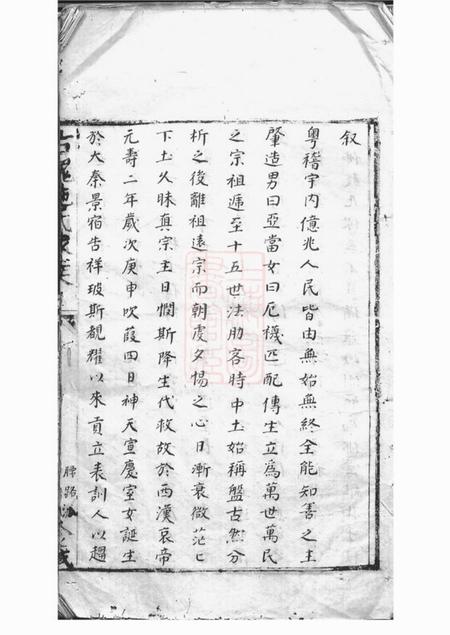 叙
粤稽宇内億兆人民皆由無始無終全能知善之主
肇造男曰亞當女曰厄襪匹配傳生立為萬世萬民
之宗祖遞至十五世法肋客時中土始稱盤古然分
析之後離祖遠宗而朝虔夕惕之心日漸衰微茫亡
下土久昧真宗主日憫斯降生代救故於西漢哀帝
元壽二年歲次庚申吹葭四日神天宣慶室女誕生
於大秦景宿告祥玻斯覩耀以來貢立表訓人以趨